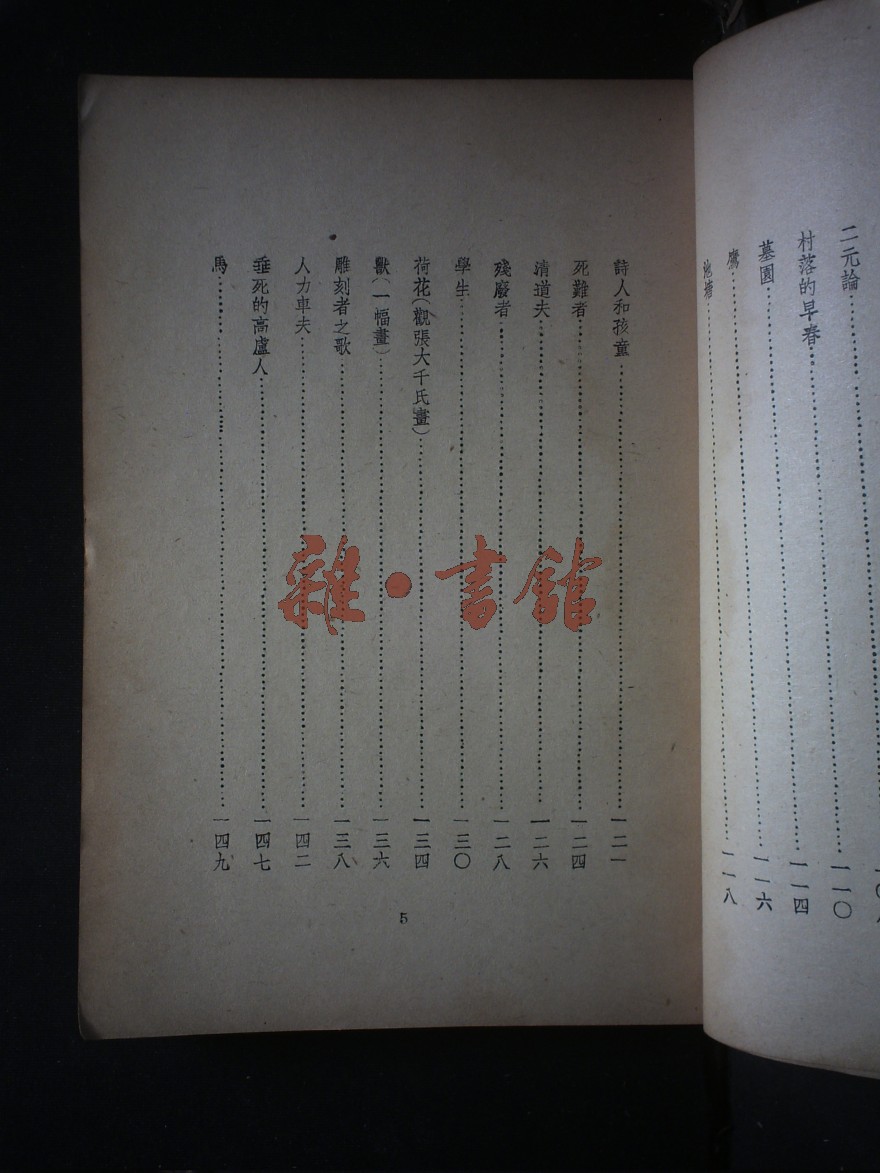 二元論……一一〇
村落的早春……一一四
墓園……一一六
鷹……一一八
池塘……
詩人和孩童……一二一
死難者……一二四
清道夫……一二六
殘廢者……一二八
學生……一三〇
荷花(觀張大千氏畫)……一三四
獸(一幅畫)……一三六
雕刻者之歌……一三八
人力車夫……一四二
垂死的高盧人……一四七
馬……一四九
5
雜·書館